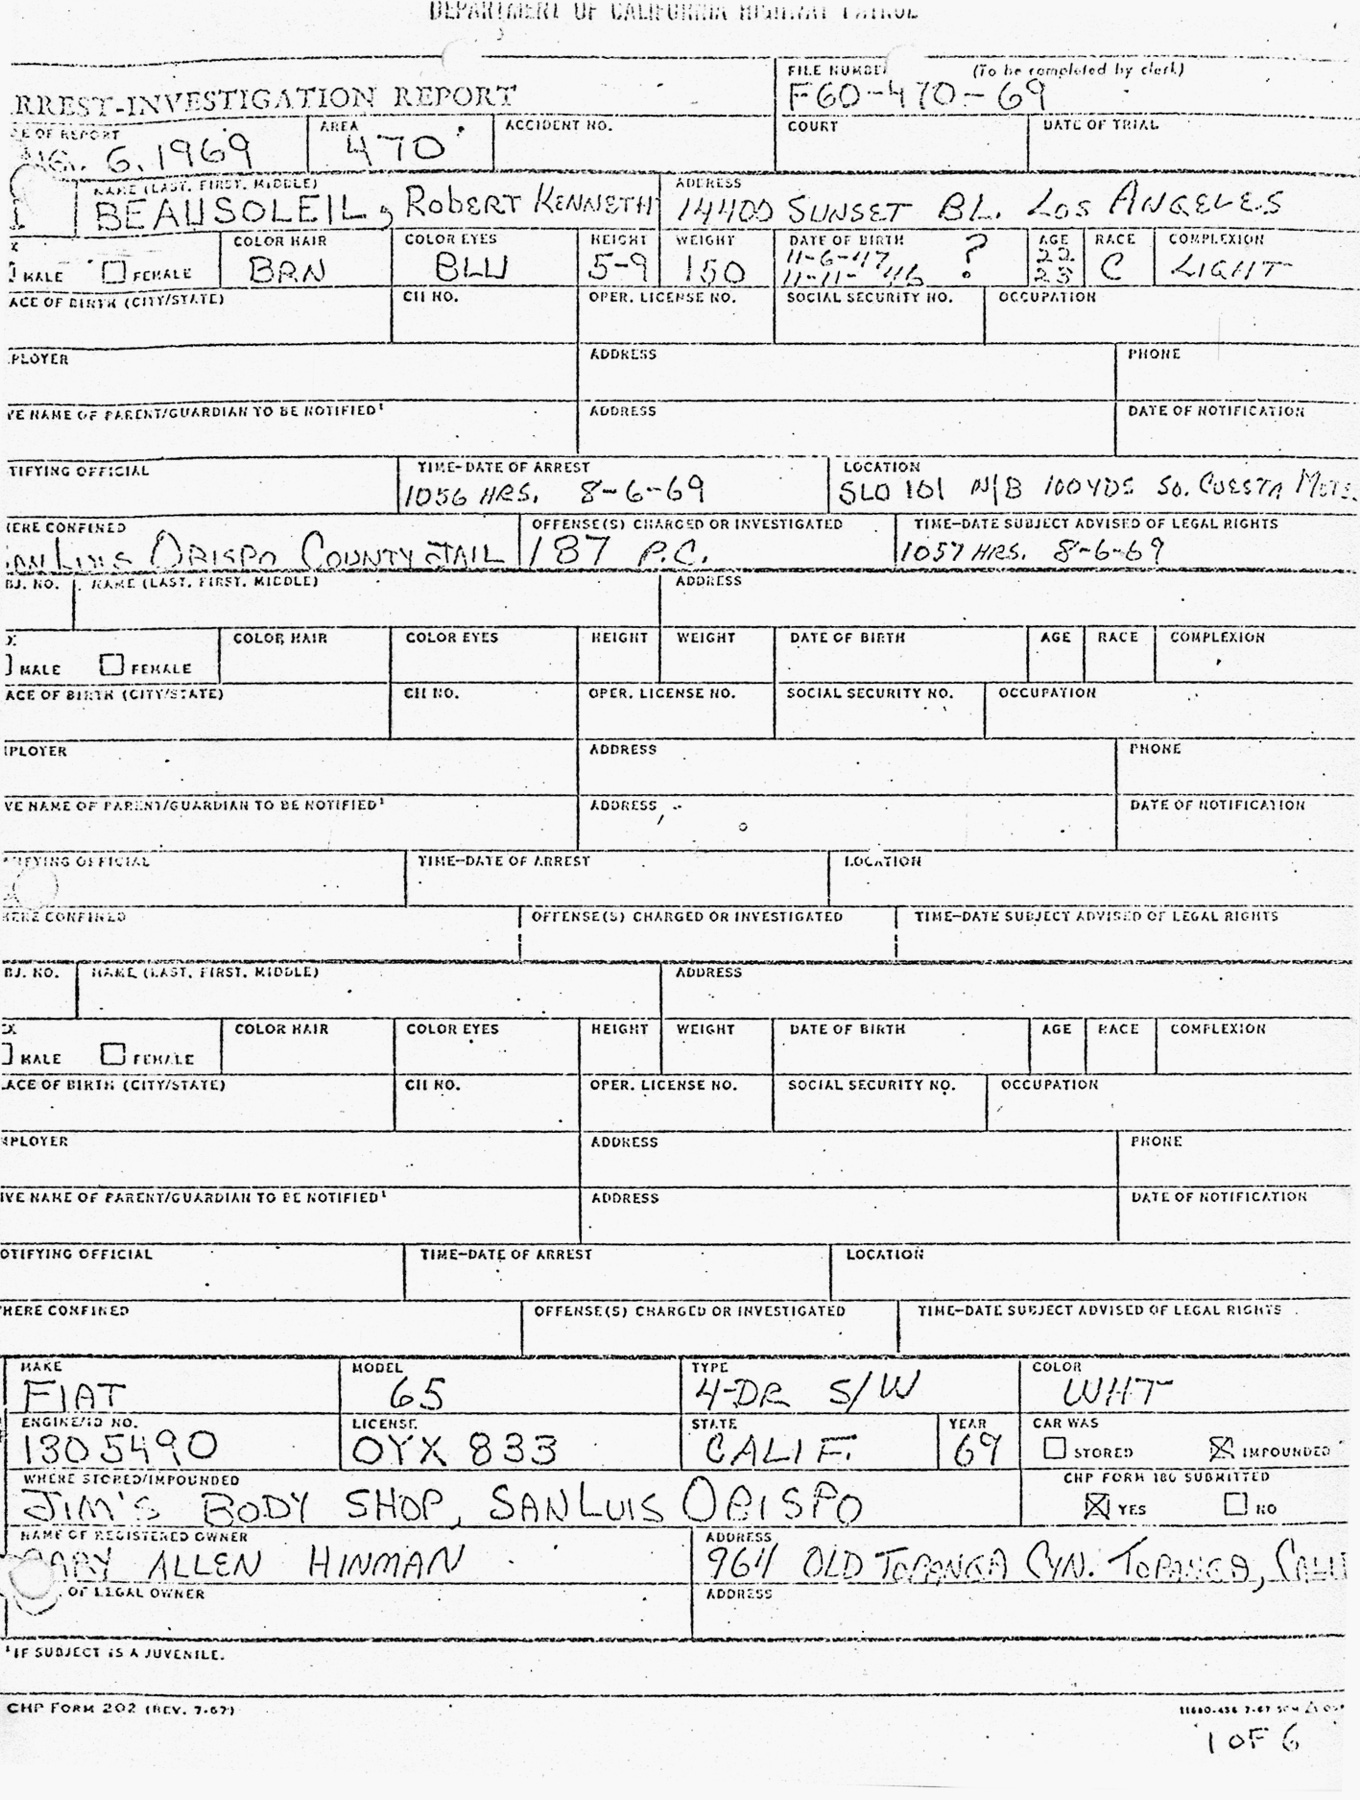 DEPARTMENT OF CALIFORNIA HIGHWAY PATROL
FILE NUMBER (To be completed by clerk)
RREST-INVESTIGATION REPORT F60-470-69
E OF REPORT AREA ACCIDENT NO. COURT DATE OF TRIAL
6, 1969 470
NAME (LAST, FIRST, MIDDLE) ADDRESS
1 BEAUSOLEIL, ROBERT KENNETH 14400 SUNSET BL. LOS ANGELES
X COLOR HAIR COLOR EYES HEIGHT WEIGHT DATE OF BIRTH AGE RACE COMPLEXION
MALE FEMALE BRN BLU 5-9 150 11-6-47 ? 22 C LIGHT
11-11-46 23
ACE OF BIRTH (CITY/STATE) CII NO. OPER. LICENSE NO. SOCIAL SECURITY NO. OCCUPATION
PLOYER ADDRESS PHONE
VE NAME OF PARENT/GUARDIAN TO BE NOTIFIED¹ ADDRESS DATE OF NOTIFICATION
TIFYING OFFICIAL TIME-DATE OF ARREST LOCATION
1056 HRS. 8-6-69 SLO 101 N/B 100 YDS SO. CUESTA
ERE CONFINED OFFENSE(S) CHARGED OR INVESTIGATED TIME-DATE SUBJECT ADVISED OF LEGAL RIGHTS
AN LUIS OBISPO COUNTY JAIL 187 P.C. 1057 HRS. 8-6-69
BJ. NO. NAME (LAST, FIRST, MIDDLE) ADDRESS
X COLOR HAIR COLOR EYES HEIGHT WEIGHT DATE OF BIRTH AGE RACE COMPLEXION
MALE FEMALE
ACE OF BIRTH (CITY/STATE) CII NO. OPER. LICENSE NO. SOCIAL SECURITY NO. OCCUPATION
PLOYER ADDRESS PHONE
VE NAME OF PARENT/GUARDIAN TO BE NOTIFIED¹ ADDRESS DATE OF NOTIFICATION
TIFYING OFFICIAL TIME-DATE OF ARREST LOCATION
HERE CONFINED OFFENSE(S) CHARGED OR INVESTIGATED TIME-DATE SUBJECT ADVISED OF LEGAL RIGHTS
BJ. NO. NAME (LAST, FIRST, MIDDLE) ADDRESS
EX COLOR HAIR COLOR EYES HEIGHT WEIGHT DATE OF BIRTH AGE RACE COMPLEXION
MALE FEMALE
LACE OF BIRTH (CITY/STATE) CII NO. OPER. LICENSE NO. SOCIAL SECURITY NO. OCCUPATION
MPLOYER ADDRESS PHONE
IVE NAME OF PARENT/GUARDIAN TO BE NOTIFIED¹ ADDRESS DATE OF NOTIFICATION
OTIFYING OFFICIAL TIME-DATE OF ARREST LOCATION
HERE CONFINED OFFENSE(S) CHARGED OR INVESTIGATED TIME-DATE SUBJECT ADVISED OF LEGAL RIGHTS
MAKE MODEL TYPE COLOR
FIAT 65 4-DR S/W WHT
ENGINE/ID NO. LICENSE STATE YEAR CAR WAS
1305490 OYX 833 CALIF. 69 STORED IMPOUNDED
WHERE STORED/IMPOUNDED CHP FORM 180 SUBMITTED
JIM'S BODY SHOP, SAN LUIS OBISPO YES NO
NAME OF REGISTERED OWNER ADDRESS
GARY ALLEN HINMAN 964 OLD TOPANGA CYN. TOPANGA, CALI
OF LEGAL OWNER ADDRESS
¹IF SUBJECT IS A JUVENILE.
CHP FORM 202 (REV. 7-67)
1 OF 6